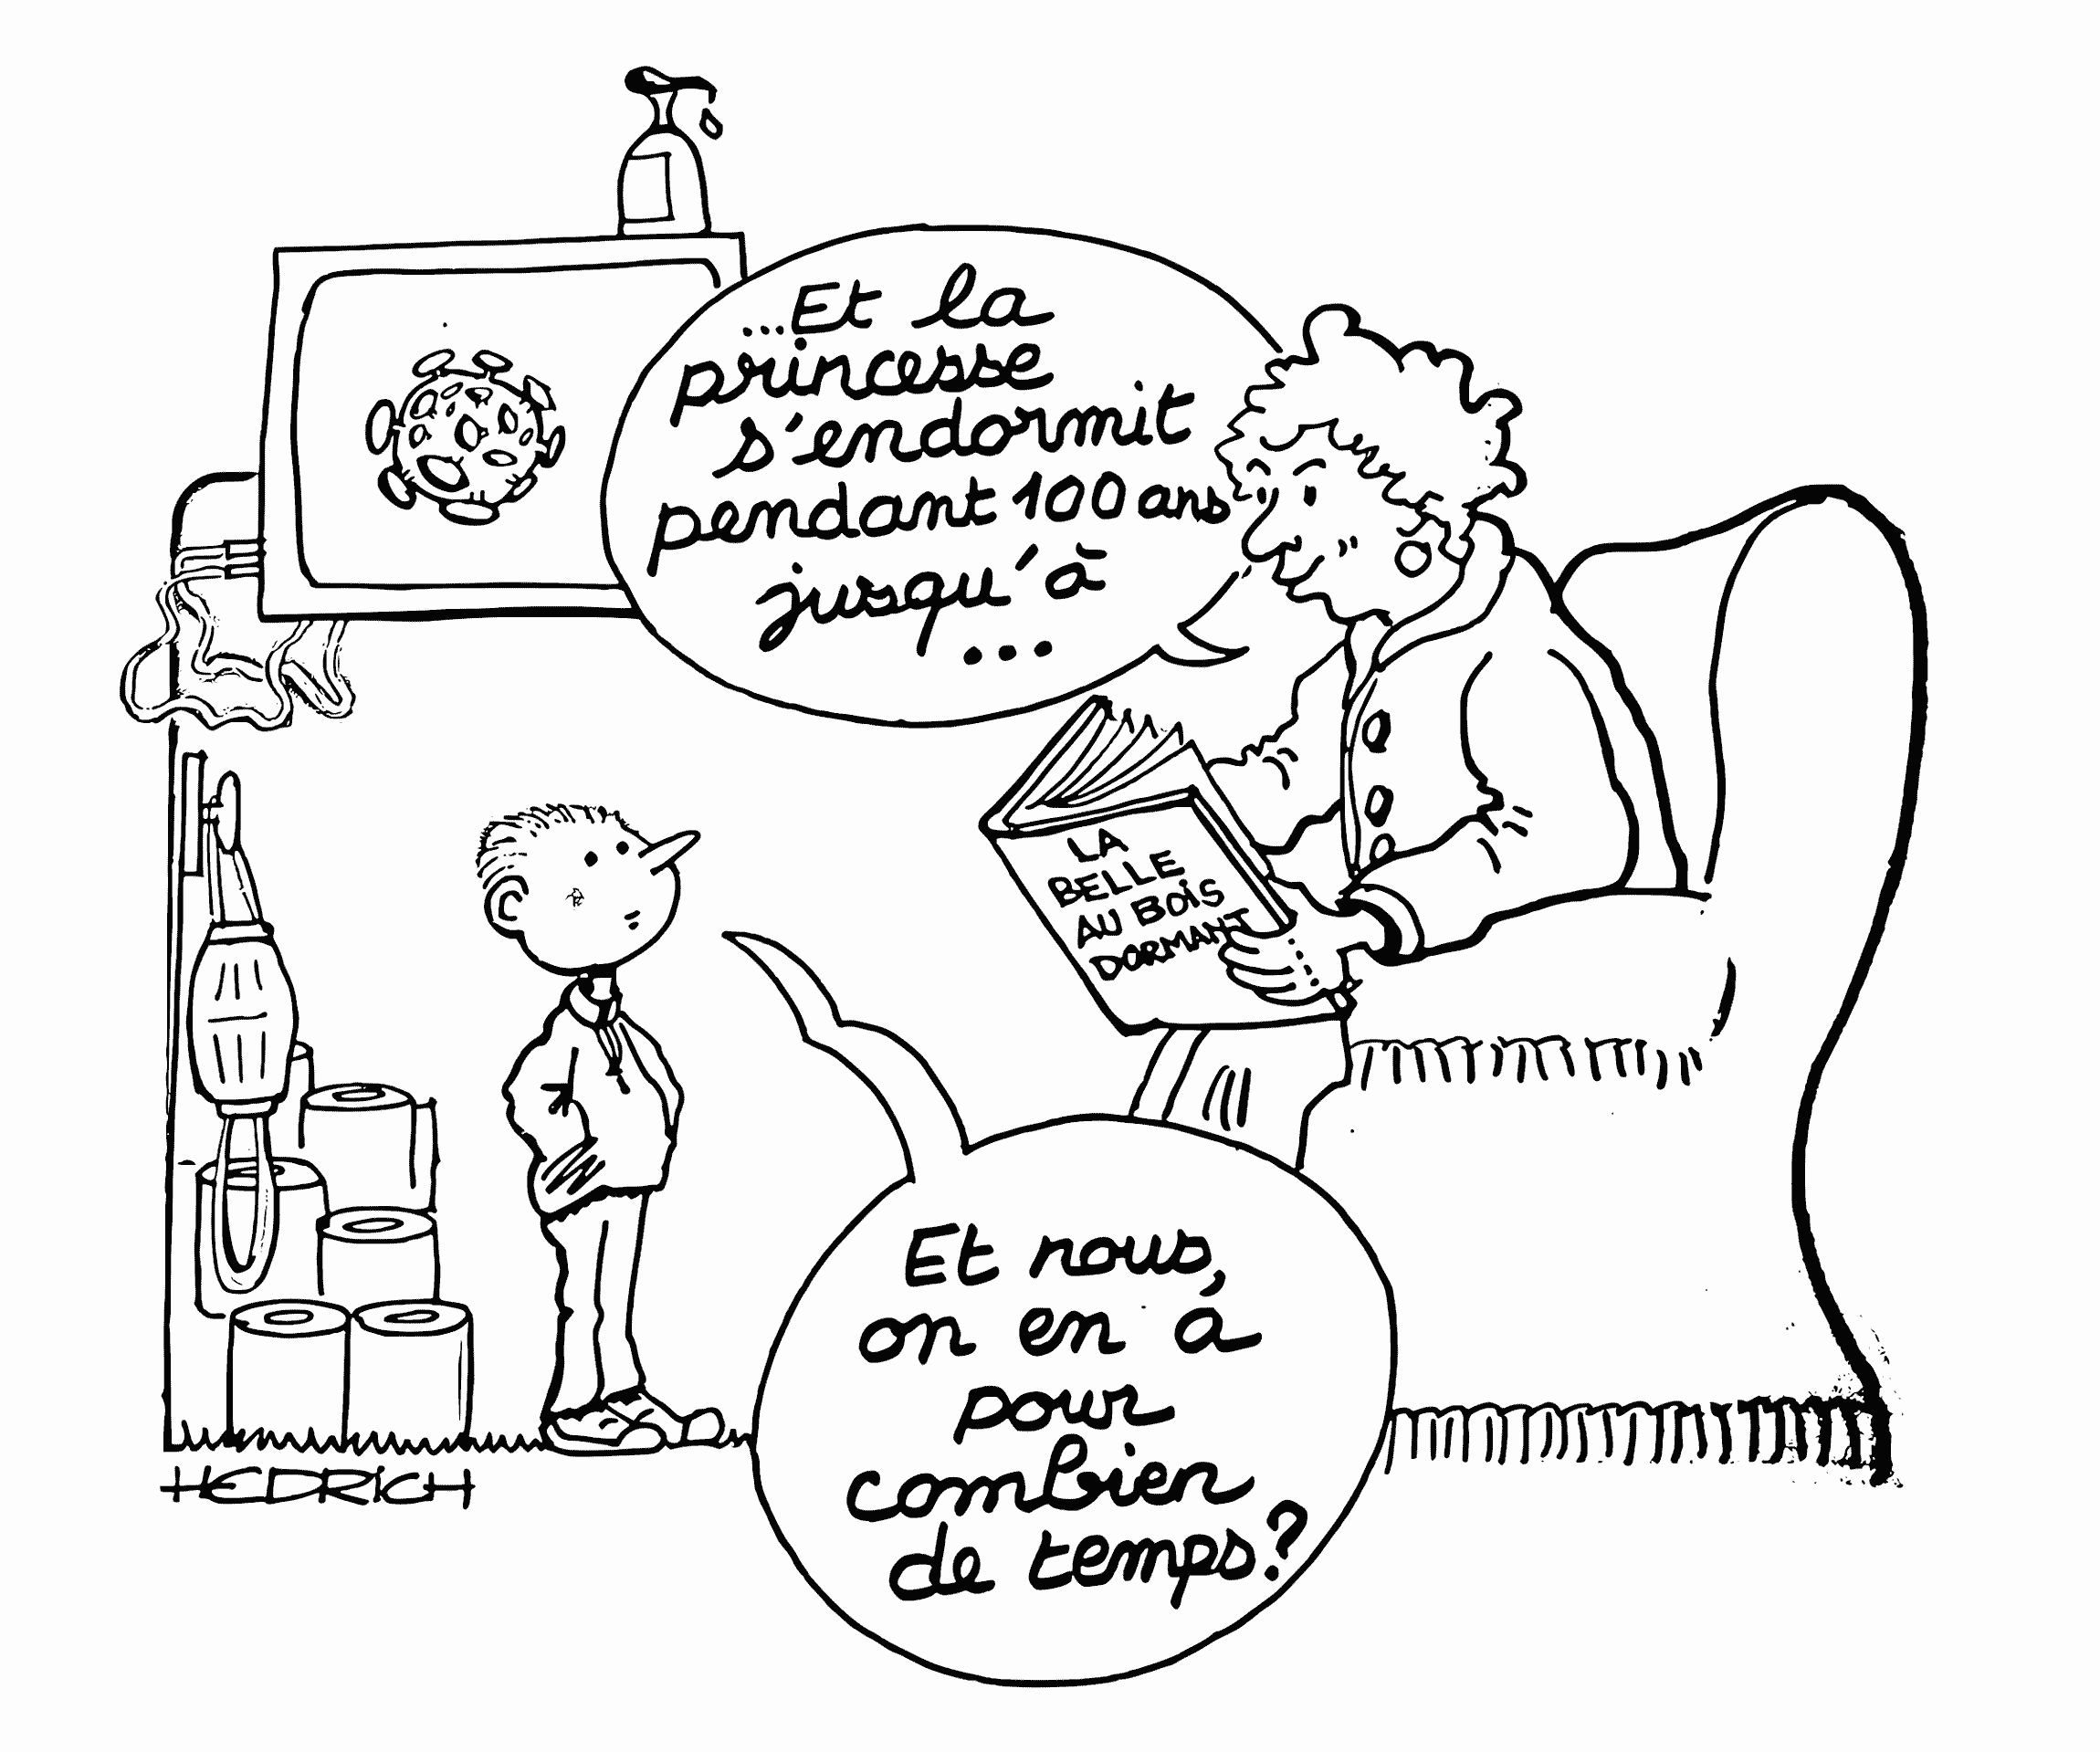 ...Et la
princesse
s'endormit
pendant 100 ans
jusqu'à
...
LA
BELLE
AU BOIS
DORMANT
Et nous,
on en à
pour
combien
de temps?
HEDRICH